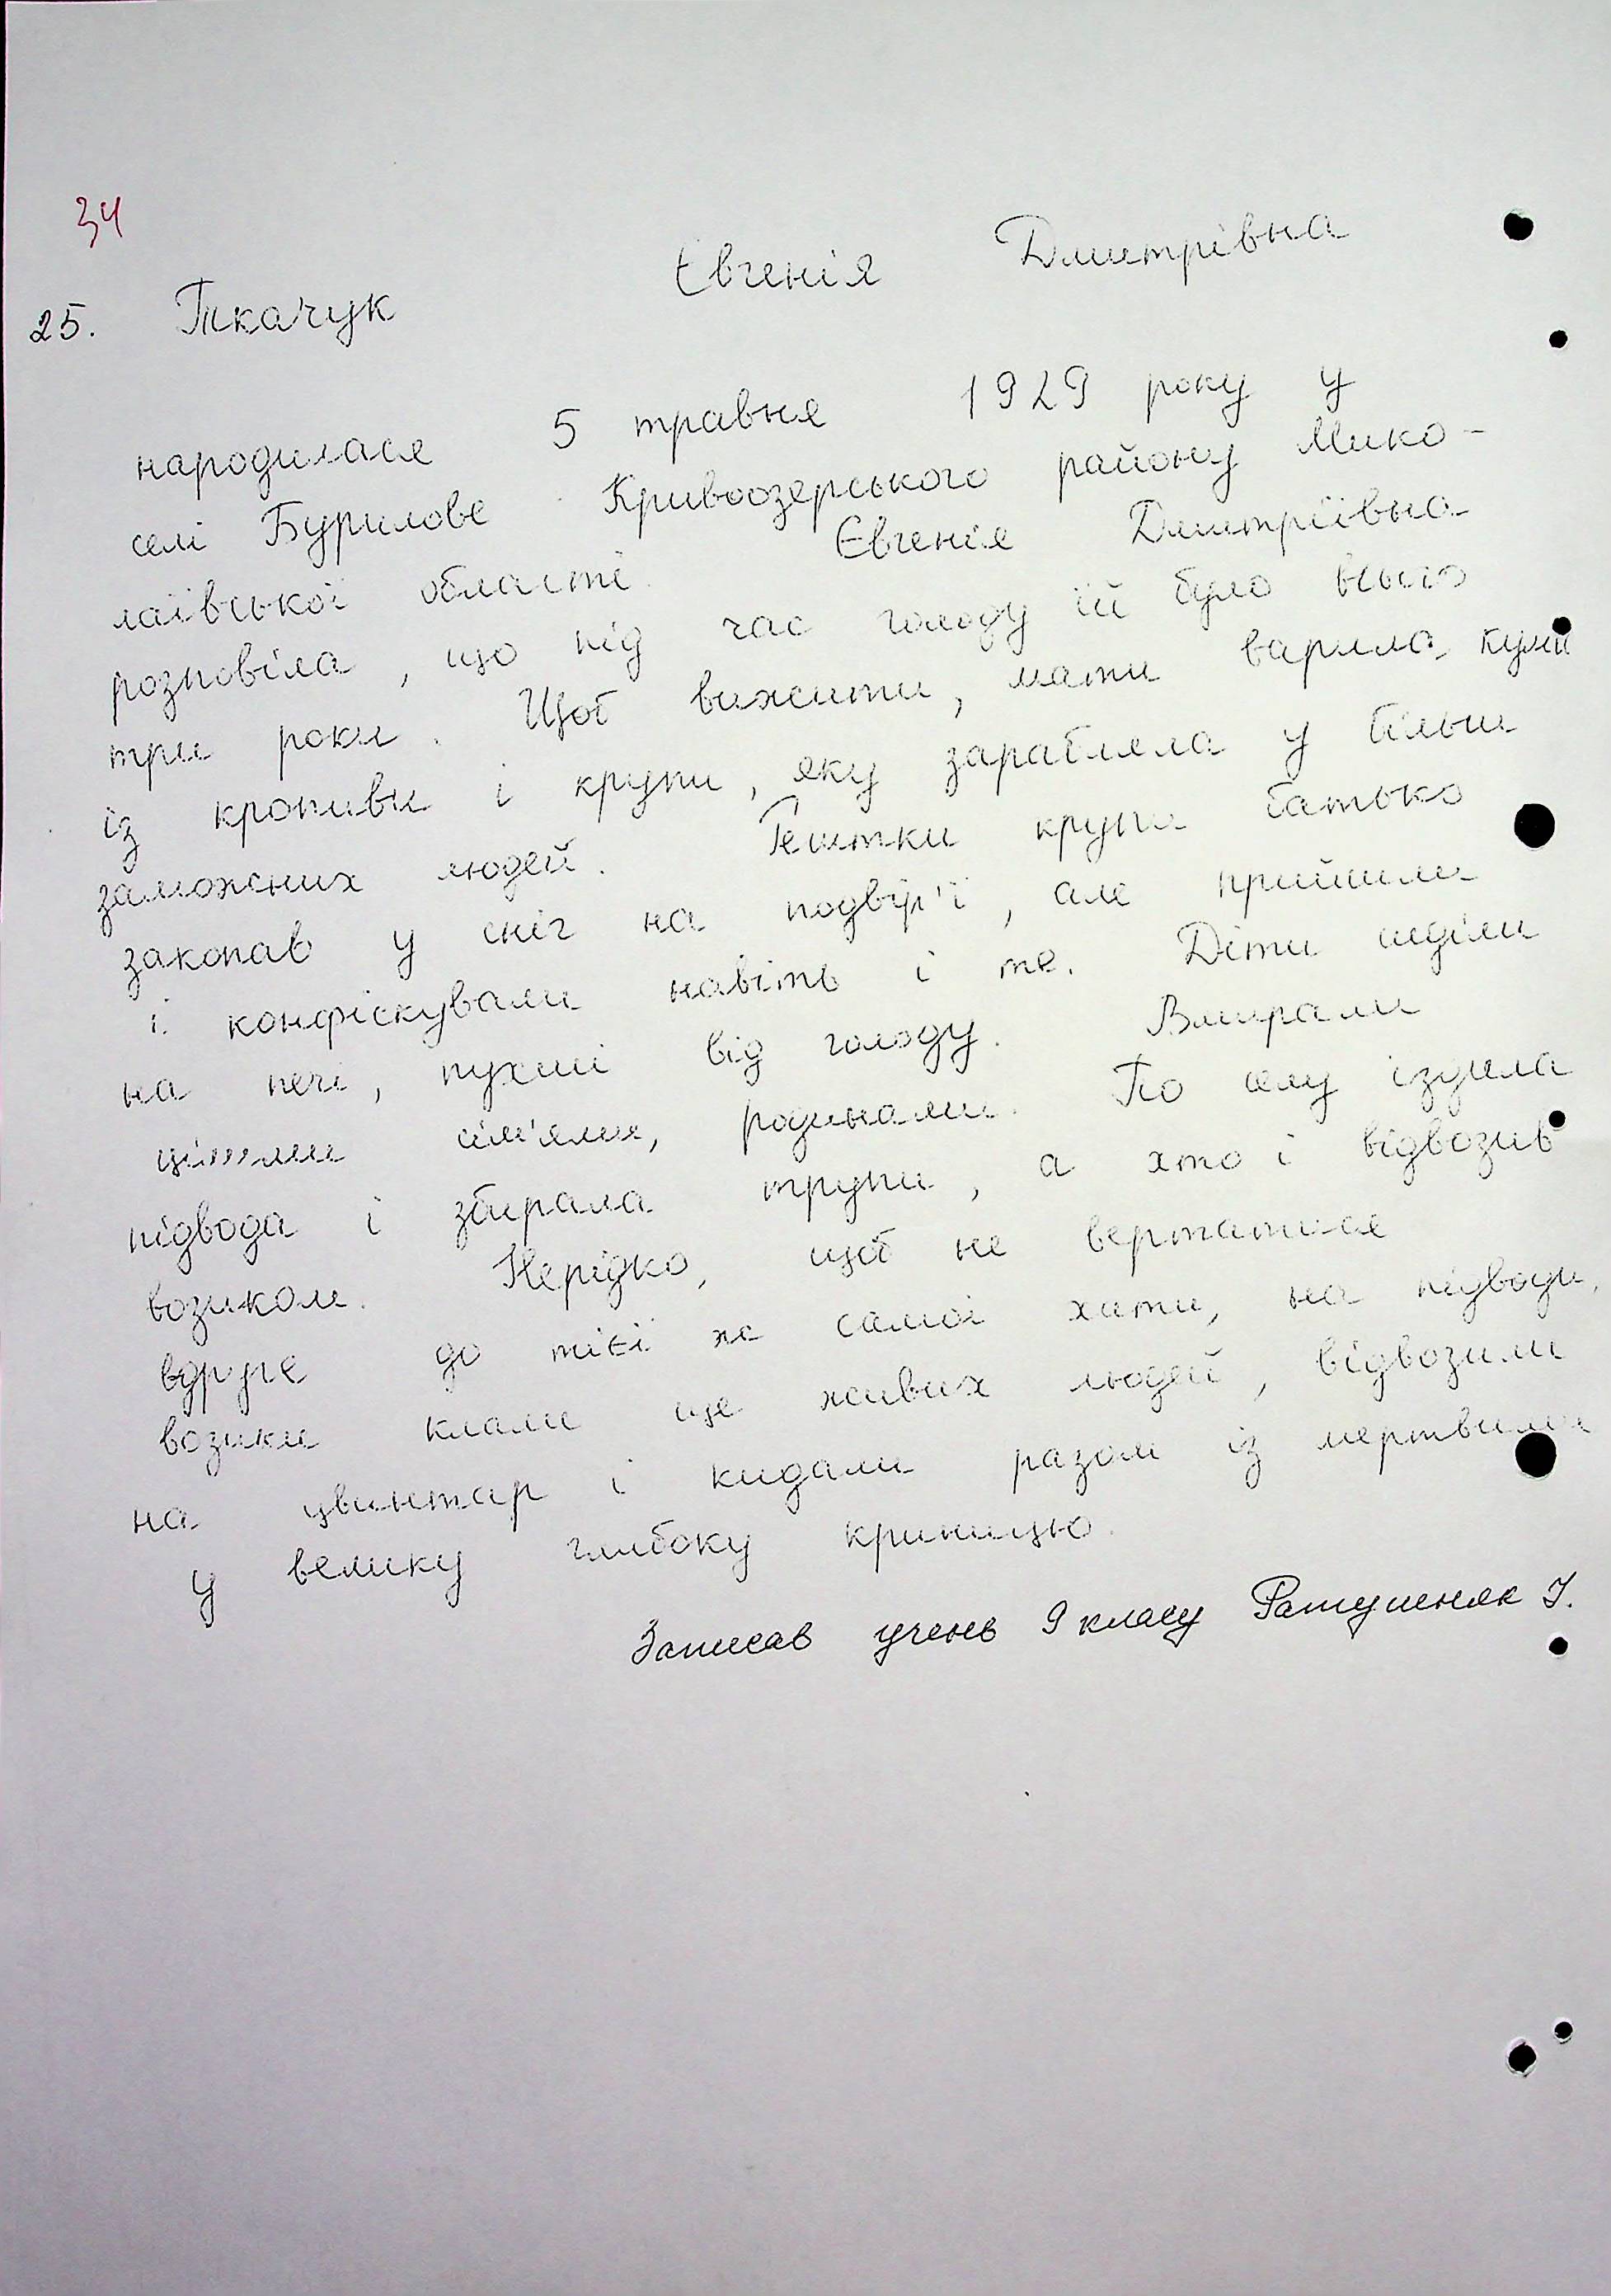 34
25. Ткачук Євгенія Дмитрівна
народилася 5 травня 1929 року у
селі Бурилове Кривоозерського району Мико-
лаївської області. Євгенія Дмитріївна
розповіла, що під час голоду їй було всього
три роки. Щоб вижити, мати варила куліш
із кропиви і крупи, яку заробляла у більш
заможних людей. Рештки крупи батько
закопав у сніг на подвір'ї, але прийшли
і конфіскували навіть і те. Діти сиділи
на печі, пухлі від голоду. Вмирали
цілими сім'ями, родинами. По селу їздила
підвода і збирала трупи, а хто і відвозив
возиком. Нерідко, щоб не вертатися
вдруге до тієї ж самої хати, на підводи,
возики клали ще живих людей, відвозили
на цвинтар і кидали разом із мертвими
у велику глибоку криницю.
Записав учень 9 класу Ратушняк І.